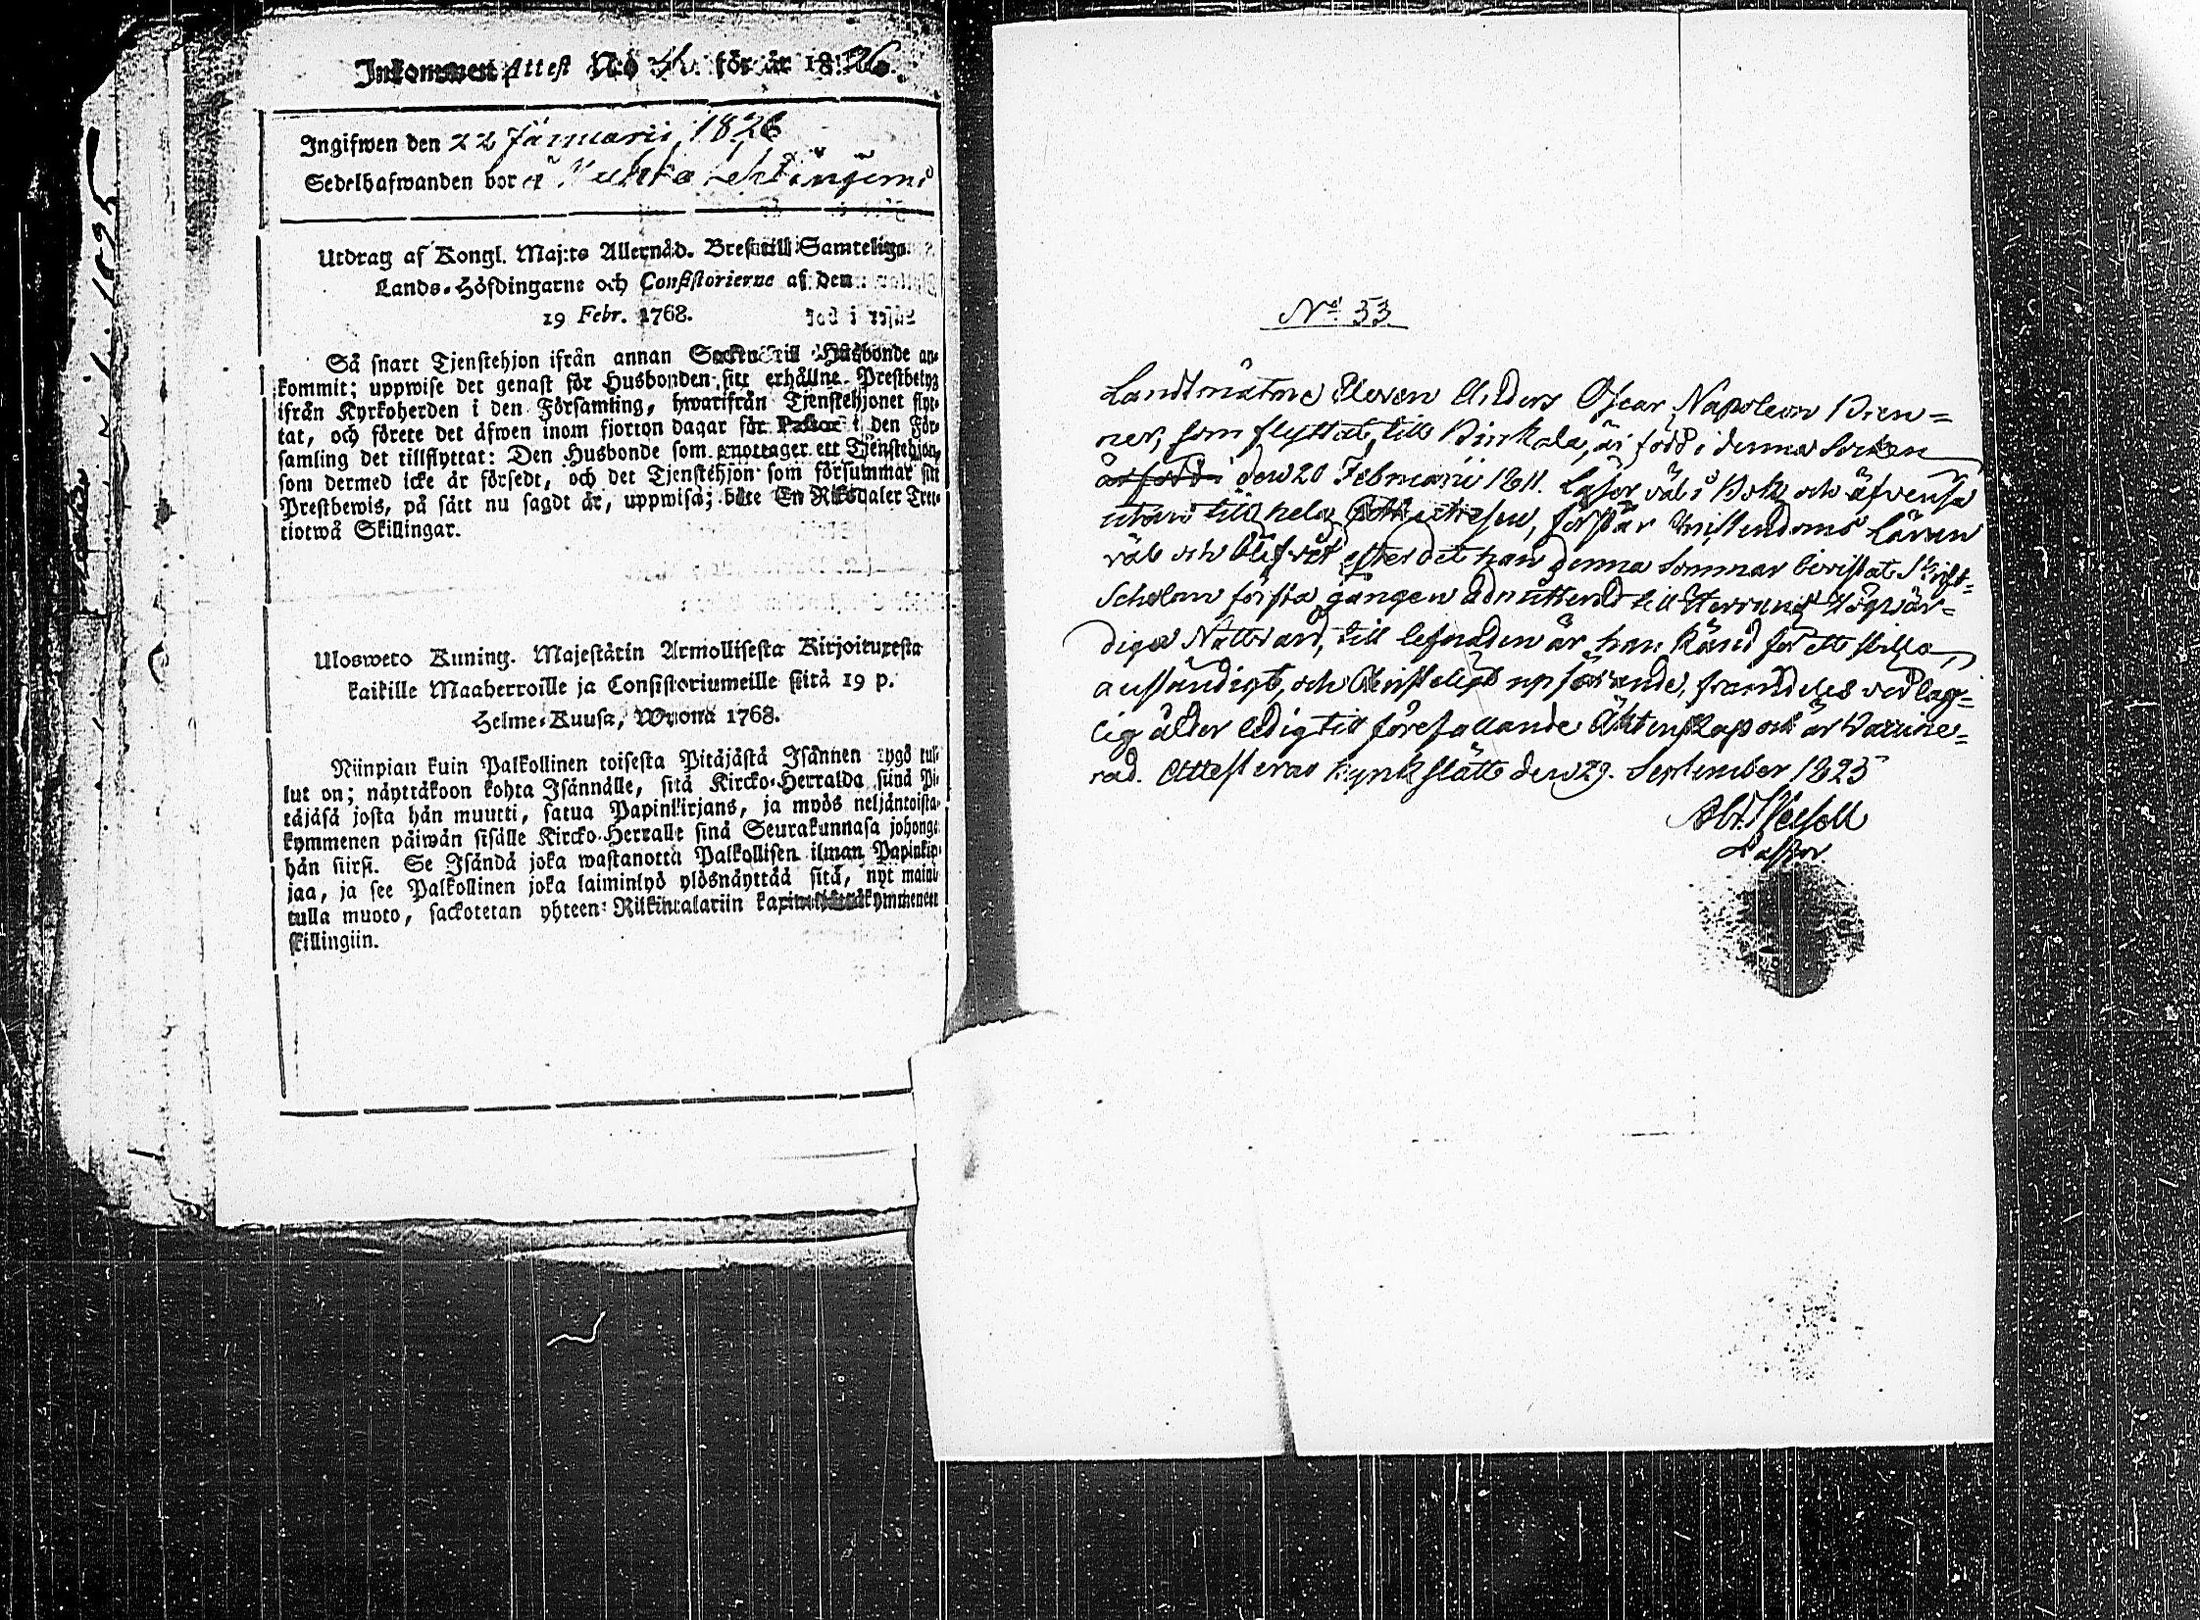 Inkommen Attest N:o för år 1826.
Ingifwen den 22 Januarii 1826
Sedelhafwanden bor å
Utdrag af Kongl. Maj:ts Allernåd. Bref till Samtelige
Lands-Höfdingarne och Consistorierne af den
19 Febr. 1768.
Så snart Tjenstehjon ifrån annan Socken till Husbonde an-
kommit; uppwise det genast för Husbonden sitt erhållne Prestbetyg
ifrån Kyrkoherden i den Församling, hwarifrån Tjenstehjonet flyt-
tat, och förete det äfwen inom fjorton dagar för Pastor i den För-
samling det tillflyttat: Den Husbonde som emottager ett Tjenstehjon,
som dermed icke är försedt, och det Tjenstehjon som försummar sitt
Prestbewis, på sätt nu sagdt är, uppwisa; böte En Riksdaler Tret-
tiotwå Skillingar.
Ulosweto Kuning. Majestätin Armollisesta Kirjoituxesta
kaikille Maaherroille ja Consistoriumeille siitä 19 p.
Helme-Kuusa, Wuona 1768.
Niinpian kuin Palkollinen toisesta Pitäjästä Isännen tygö tul-
lut on; näyttäkoon kohta Isännälle, sitä Kircko-Herralda siinä Pi-
täjäsä josta hän muutti, saatua Papinkirjans, ja myös neljäntoista-
kymmenen päiwän sisälle Kircko-Herralle sinä Seurakunnasa johonga
hän siirsi. Se Isändä joka wastanotta Palkollisen ilman Papinkir-
jaa, ja see Palkollinen joka laiminlyö ylösnäyttää sitä, nyt maini-
tulla muoto, sackotetan yhteen Riikintalariin kaxineljättäkymmenen
skillingiin.
N:o 33
Landtmätare Eleven Anders Oscar Napoleon
ner, som flyttat till Birkala, är född i denna Socken
är född den 20 Februarii 1811. Läser väl i Bok och äfvenså
utan till hela, förstår Christendoms Läran
väl och blef vid efter det han denna Sommar bevistat Skrift-
Scholan första gången admitterad till Herrans Högvär-
diga Nattvard, till lefnaden är han känd för ett stilla,
anständigt, och Christeligt upförande, framdeles ved lag-
lig ålder ledig till förefallande Äktenskap och är Vaccine-
rad. Attesteras Kyrkslätt den 29. September 1825
Abr.
Pastor.